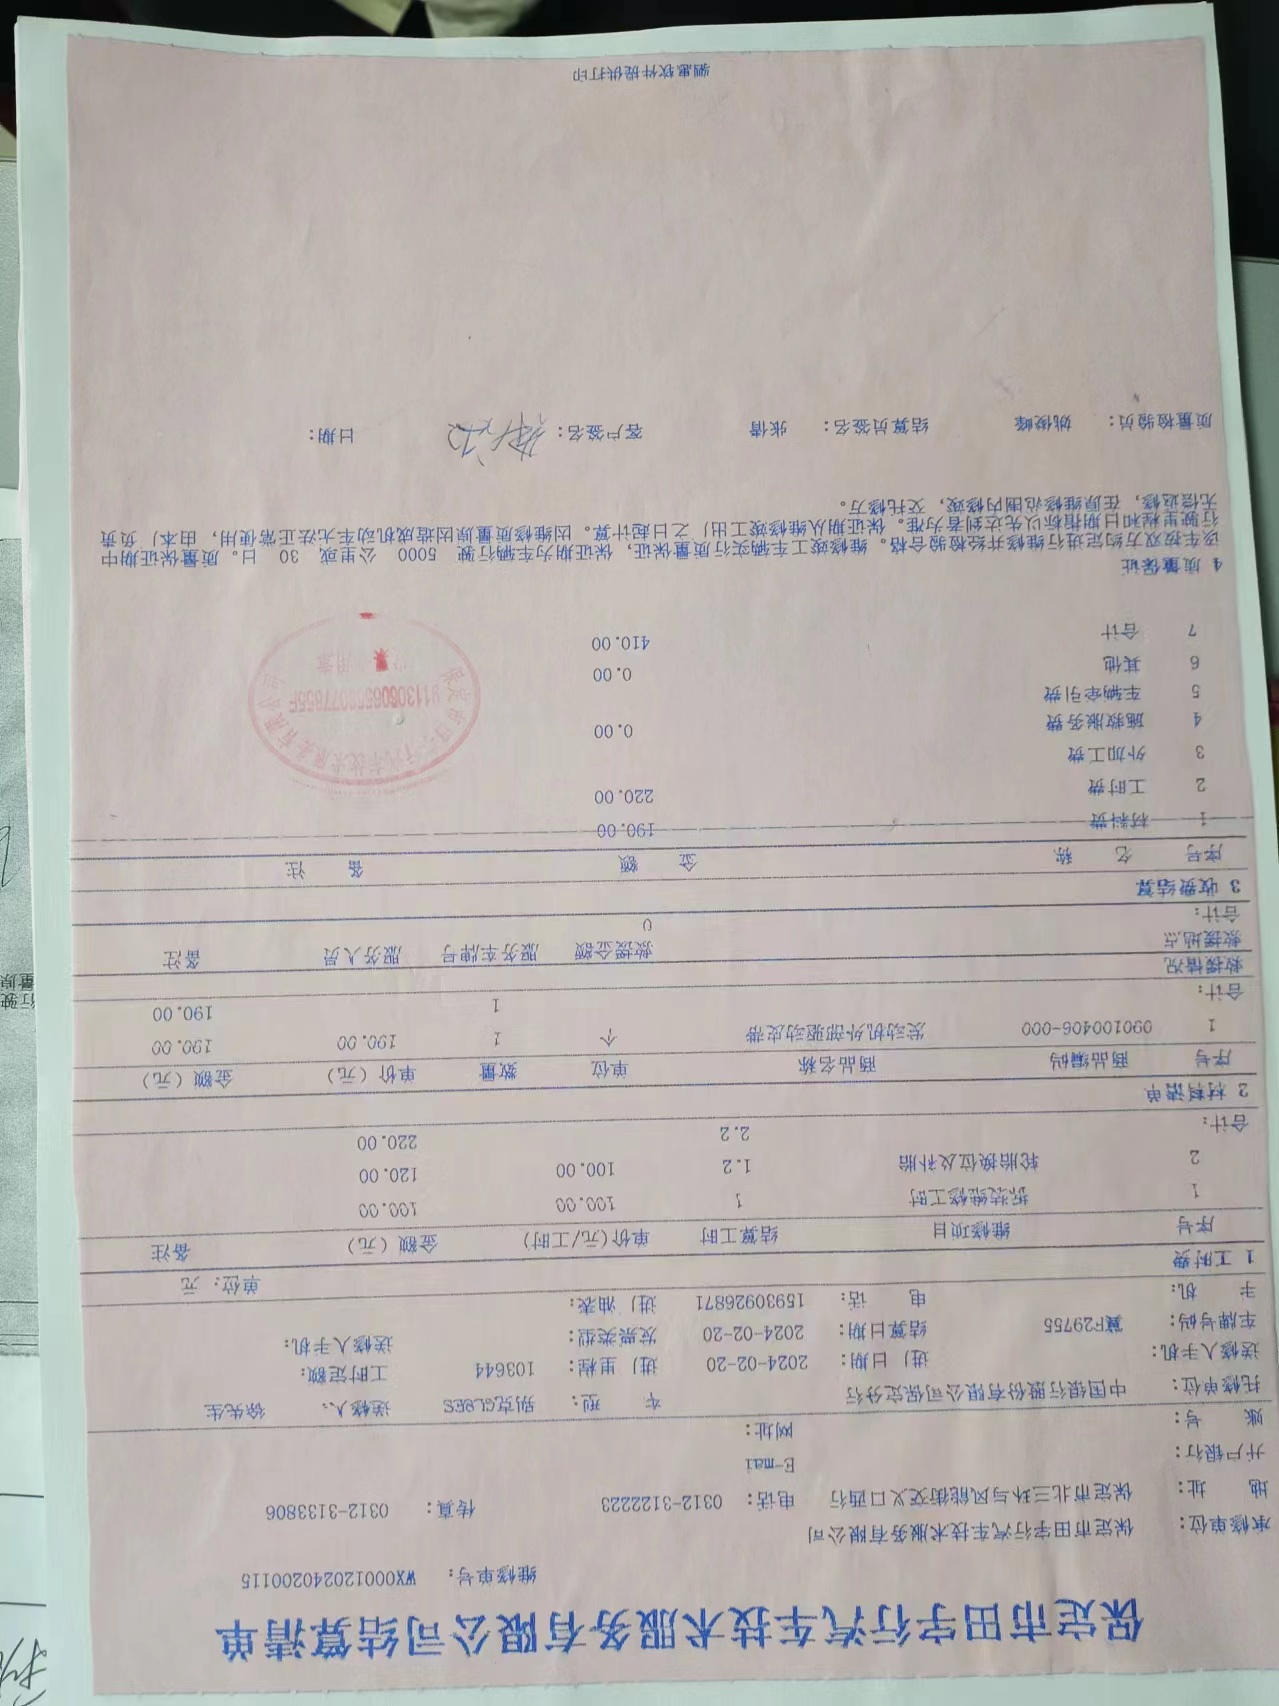 保定市田宇行汽车技术服务有限公司结算清单
维修单号： WX000120240200115
承修单位： 保定市田宇行汽车技术服务有限公司
地 址： 保定市北三环与风能街交叉口西行 电话： 0312-3122223 传真： 0312-3133806
开户银行： E-mai
账 号： 网址：
托修单位： 中国银行股份有限公司保定分行 车 型： 别克GL8ES 送修人： 徐先生
送修人手机： 进厂日期： 2024-02-20 进厂里程： 103644 工时定额：
车牌号码： 冀F29755 结算日期： 2024-02-20 发票类型： 送修人手机：
手 机： 电 话： 15930926871 进厂油表：
1 工时费 单位：元
序号 维修项目 结算工时 单价(元/工时) 金额（元） 备注
1 拆装维修工时 1 100.00 100.00
2 轮胎换位及补胎 1.2 100.00 120.00
合计： 2.2 220.00
2 材料清单
序号 商品编码 商品名称 单位 数量 单价（元） 金额（元）
1 090100406-000 发动机外部驱动皮带 个 1 190.00 190.00
合计： 1 190.00
救援情况
救援地点 救援金额 服务车牌号 服务人员 备注
合计： 0
3 收费结算
序号 名 称 金 额 备 注
1 材料费 190.00
2 工时费 220.00
3 外加工费
4 施救服务费 0.00
5 车辆牵引费
6 其他 0.00
7 合计 410.00
4 质量保证
该车按双方约定进行维修并经检验合格。维修竣工车辆实行质量保证，保证期为车辆行驶 5000 公里或 30 日。质量保证期中
行驶里程和日期指标以先达到者为准。保证期从维修竣工出厂之日起计算。因维修质量原因造成机动车无法正常使用，由本厂负责
无偿返修，在原维修范围内修竣，交托修方。
质量检验员： 姚俊峰 结算员签名： 张倩 客户签名： 日期：
驷惠软件提供打印